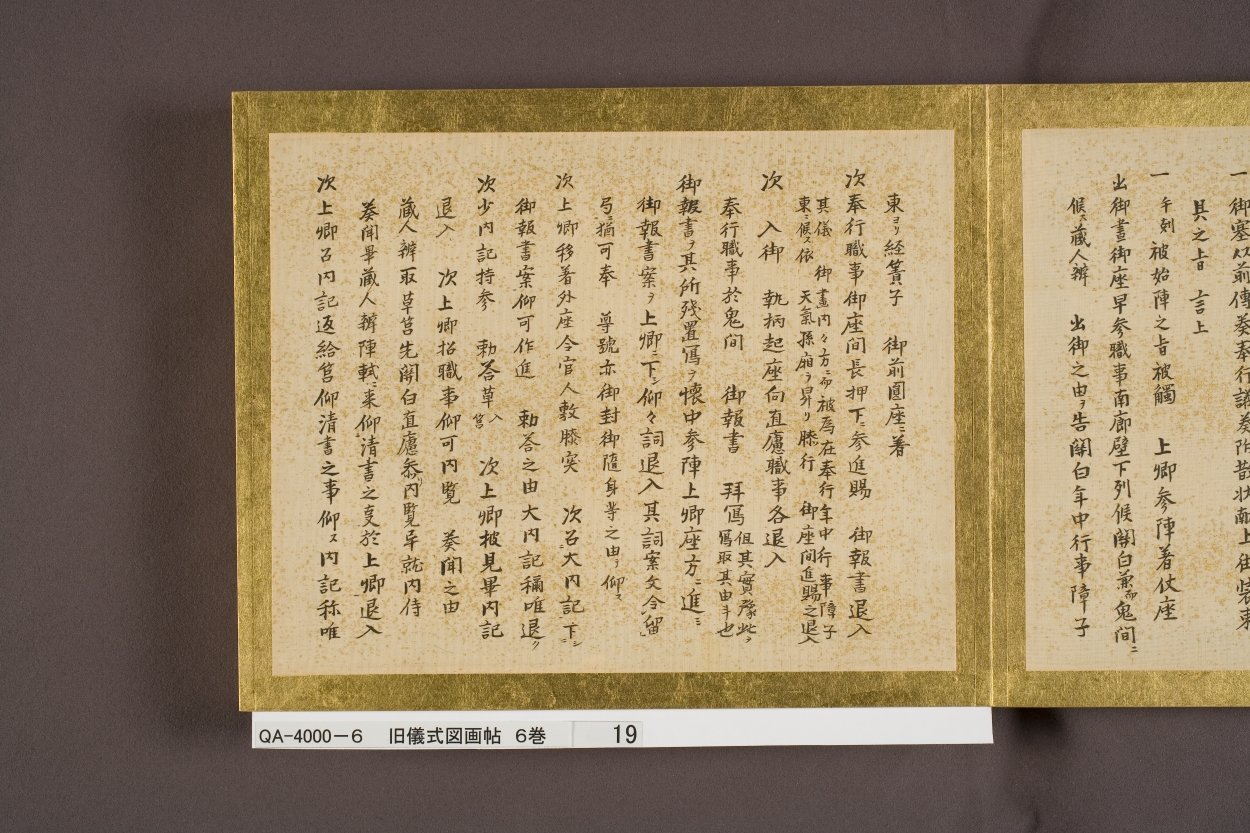 一 御塞以前傳奏奉行議奏附
其之上日 言上
一 午刻 被始陣之旨被觸 上卿参陣著仗座
出御晝御座早参職事南廊壁下列候關白兼而鬼間ニ
候ス蔵人辨 出御之由ヲ告關白年中行事障子
東ヨリ経簀子 御前圓座ニ著
次奉行職事御座間長押下ニ参進賜 御報書退入
其儀 御晝内々方ニ而被為在奉行年中行事障子
東ニ候ス依 天氣孫廂ヲ昇リ膝行 御座間進賜之退入
次 入御 執柄起座向直廬職事各退入
奉行職事於鬼間 御報書 拝寫 但其實豫此ヲ
寫取其由斗也
御報書ヲ其所残置寫ヲ懐中参陣上卿座方ニ進ミ
御報書案ヲ上卿ニ下シ仰々詞退入其詞案文令留
弓ニ猶可奉 尊號亦御封御隨身等之由ヲ仰ス
次上卿移著外座令官人敷膝突 次召大内記下シ
御報書案仰可作進 勅答之由大内記稱唯退ク
次少内記持参 勅答草入筥 次上卿披見畢内記
退入 次上卿招職事仰可内覧 奏聞之由
蔵人辨取草筥先關白直廬参内覧畢就内侍
奏聞畢蔵人辨陣軾ニ来仰清書之叓於上卿退入
次上卿召内記返給筥仰清書之事仰ス内記称唯
QA-4000-6 旧儀式図画帖 6巻 19